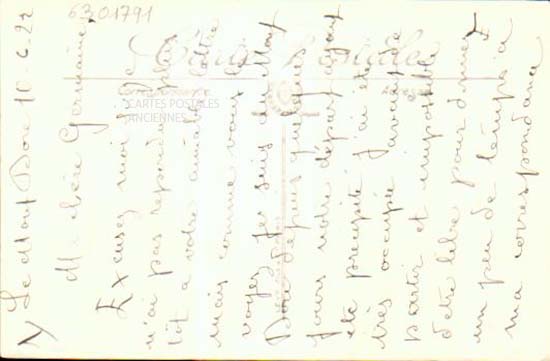 6301791
Carte Postale
Correspondance
Adresse
CARTES POSTALES
ANCIENNES
Le Mont Dore 10-6-22
Ma chère Germaine,
Excusez moi si je
n'ai pas répondu plus
tôt a votre aimable lettre
mais comme vous le
voyez je suis au Mont
Dore depuis quelques
jours notre départ ayant
été précipité j'ai été
très occupée avant de
partir et impossible
d'être libre pour donner
un peu de temps a
ma correspondance